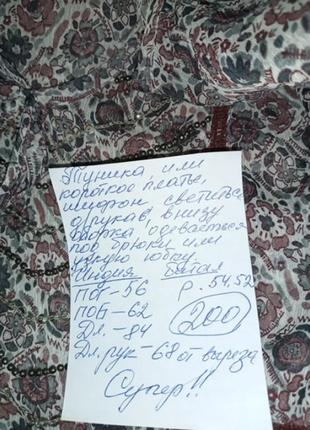 Туника, или
короткое платье,
шифон, светиться
д рукав, внизу
сборка, одеваеться
под брюки или
узкую юбку.
Индия Батал
ПОГ-56 р. 54,52
ПОБ-62 200
Дл.-84
Дл. рук-68 от выреза
Супер!!